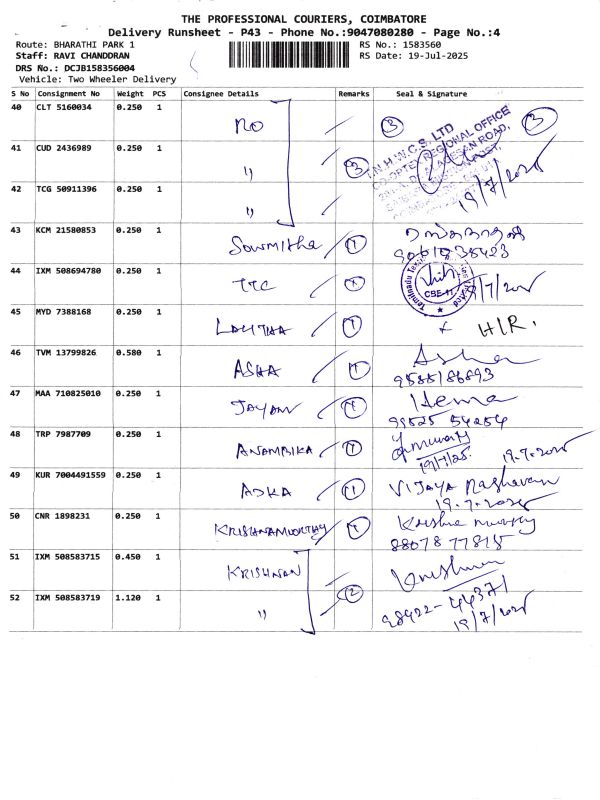 THE PROFESSIONAL COURIERS, COIMBATORE
Delivery Runsheet - P43 - Phone No.:9047080280 - Page No.:4
Route: BHARATHI PARK 1 RS No.: 1583560
Staff: RAVI CHANDDRAN RS Date: 19-Jul-2025
DRS No.: DCJB158356004
Vehicle: Two Wheeler Delivery
S No Consignment No Weight PCS Consignee Details Remarks Seal & Signature
40 CLT 5160034 0.250 1 RO 3 3
41 CUD 2436989 0.250 1 " 3 T.N.H.W.C.S. LTD
REGIONAL OFFICE
42 TCG 50911396 0.250 1 " 19/7/2025
43 KCM 21580853 0.250 1 Sowmitha 1
44 IXM 508694780 0.250 1 TTC 1 CSE-11
45 MYD 7388168 0.250 1 LALITHA 1 H/R.
46 TVM 13799826 0.580 1 ASHA 1 Asha
47 MAA 710825010 0.250 1 JAYANV 1 Hema
99525 54254
48 TRP 7987709 0.250 1 ANAMBIKA 1 19/7/25. 19.7.2025
49 KUR 7004491559 0.250 1 ASKA 1 VIJAYA Raghavan
19.7.2025
50 CNR 1898231 0.250 1 KRISHNAMURTHY 1 Krishna murthy
88078 77815
51 IXM 508583715 0.450 1 KRISHNAN 2 Krishnan
52 IXM 508583719 1.120 1 " 98422-44371
19/7/2025